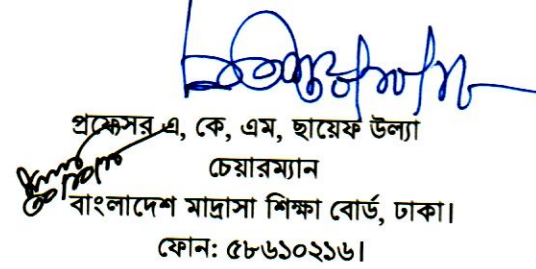 প্রফেসর এ, কে, এম, ছায়েফ উল্যা
চেয়ারম্যান
বাংলাদেশ মাদ্রাসা শিক্ষা বোর্ড, ঢাকা।
ফোন: ৫৮৬১০২১৬।